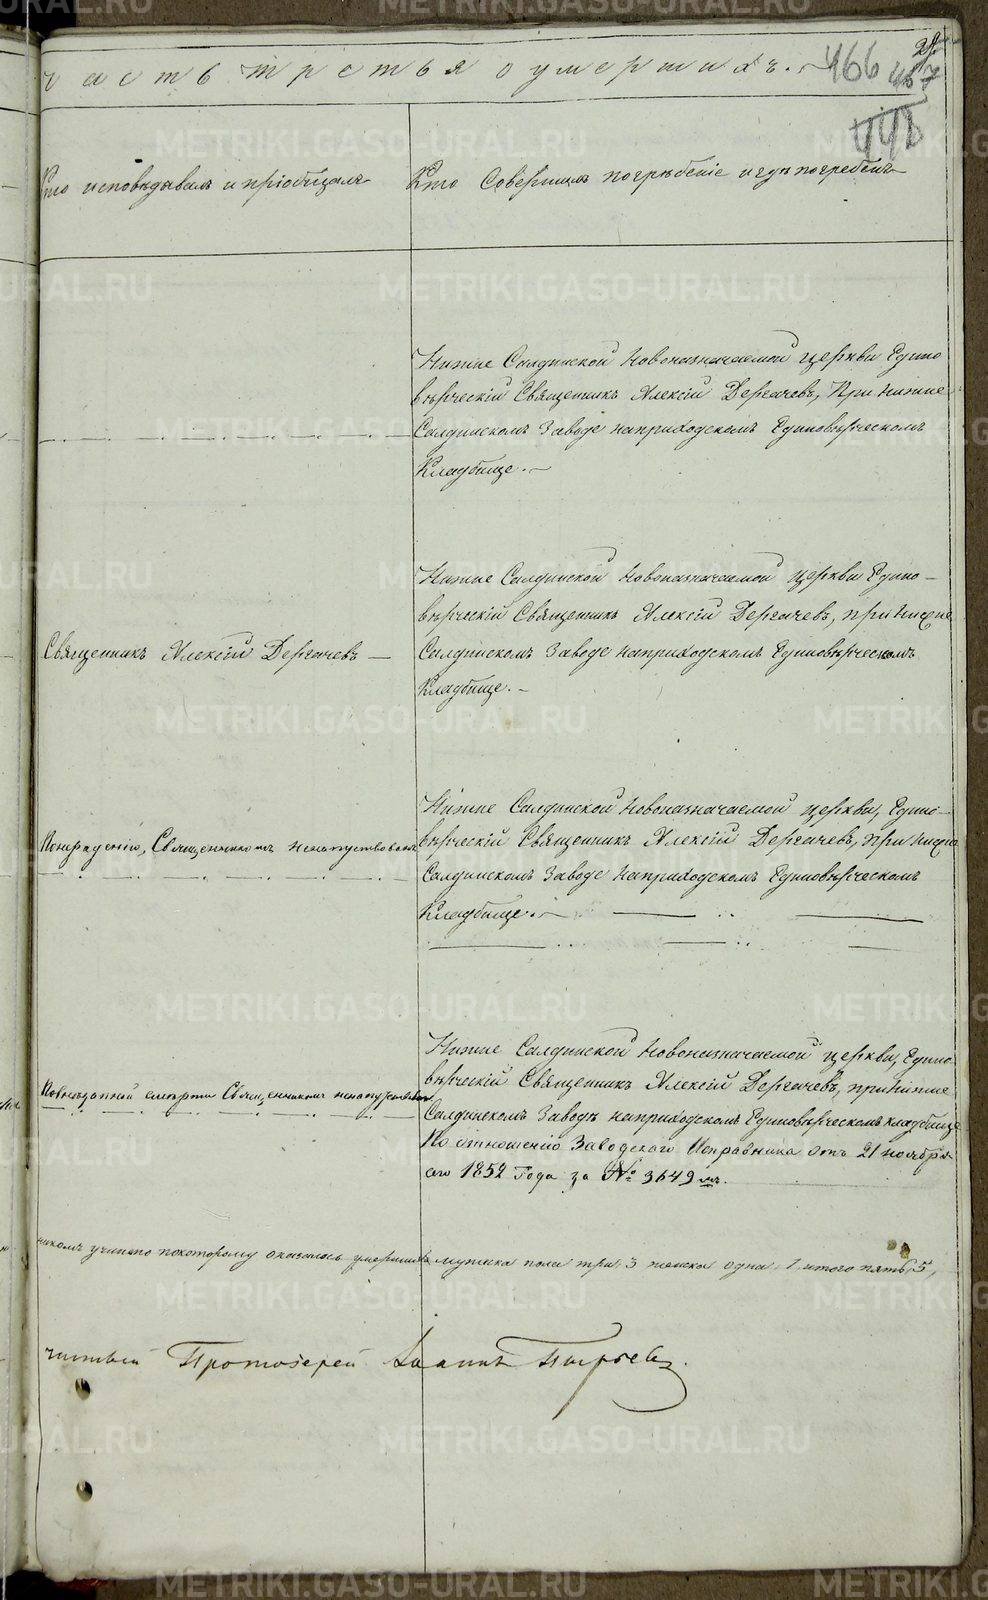 часть третья о умершихъ.
466 467
29
448
Кто исповѣдывалъ и пріобщалъ
Кто Совершилъ погрѣбеніе и гдѣ погребенъ
Нижне Салдинской Новоназначаемой церкви Едино
вѣрческій Священникъ Алексій Дергачевъ, При Нижне
Салдинскомъ Заводе наприходскомъ Единовѣрческомъ
Кладбище.
Священникъ Алексій Дергачевъ —
Нижне Салдинской Новоназначаемой церкви Едино–
вѣрческій Священникъ Алексій Дергачевъ, при Нижне
Салдинскомъ Заводе наприходскомъ Единовѣрческомъ
Кладбище. –
Священникомъ ненапутствованъ
Нижне Салдинской Новоназначаемой церкви, Едино–
вѣрческій Священникъ Алексій Дергачевъ, При Нижне
Салдинскомъ Заводе Наприходскомъ Единовѣрческомъ
Кладбище.
Повнезапной смерти Священникомъ ненапутствованъ
Нижне Салдинской Новоназначаемой церкви, Едино
вѣрческій Священникъ Алексій Дергачевъ, при Нижне
Салдинскомъ Заводѣ наприходскомъ Единовѣрческомъ кладбище
По отношенію Заводскаго Исправника отъ 21 ноября
сего 1852 Года за № 3649 мъ.
покоторому оказалось умершихъ мужска пола три, 3 женска одна, 1 итого пять, 5,
Протоіерей Іоаннъ Пырьевъ.
METRIKI.GASO-URAL.RU